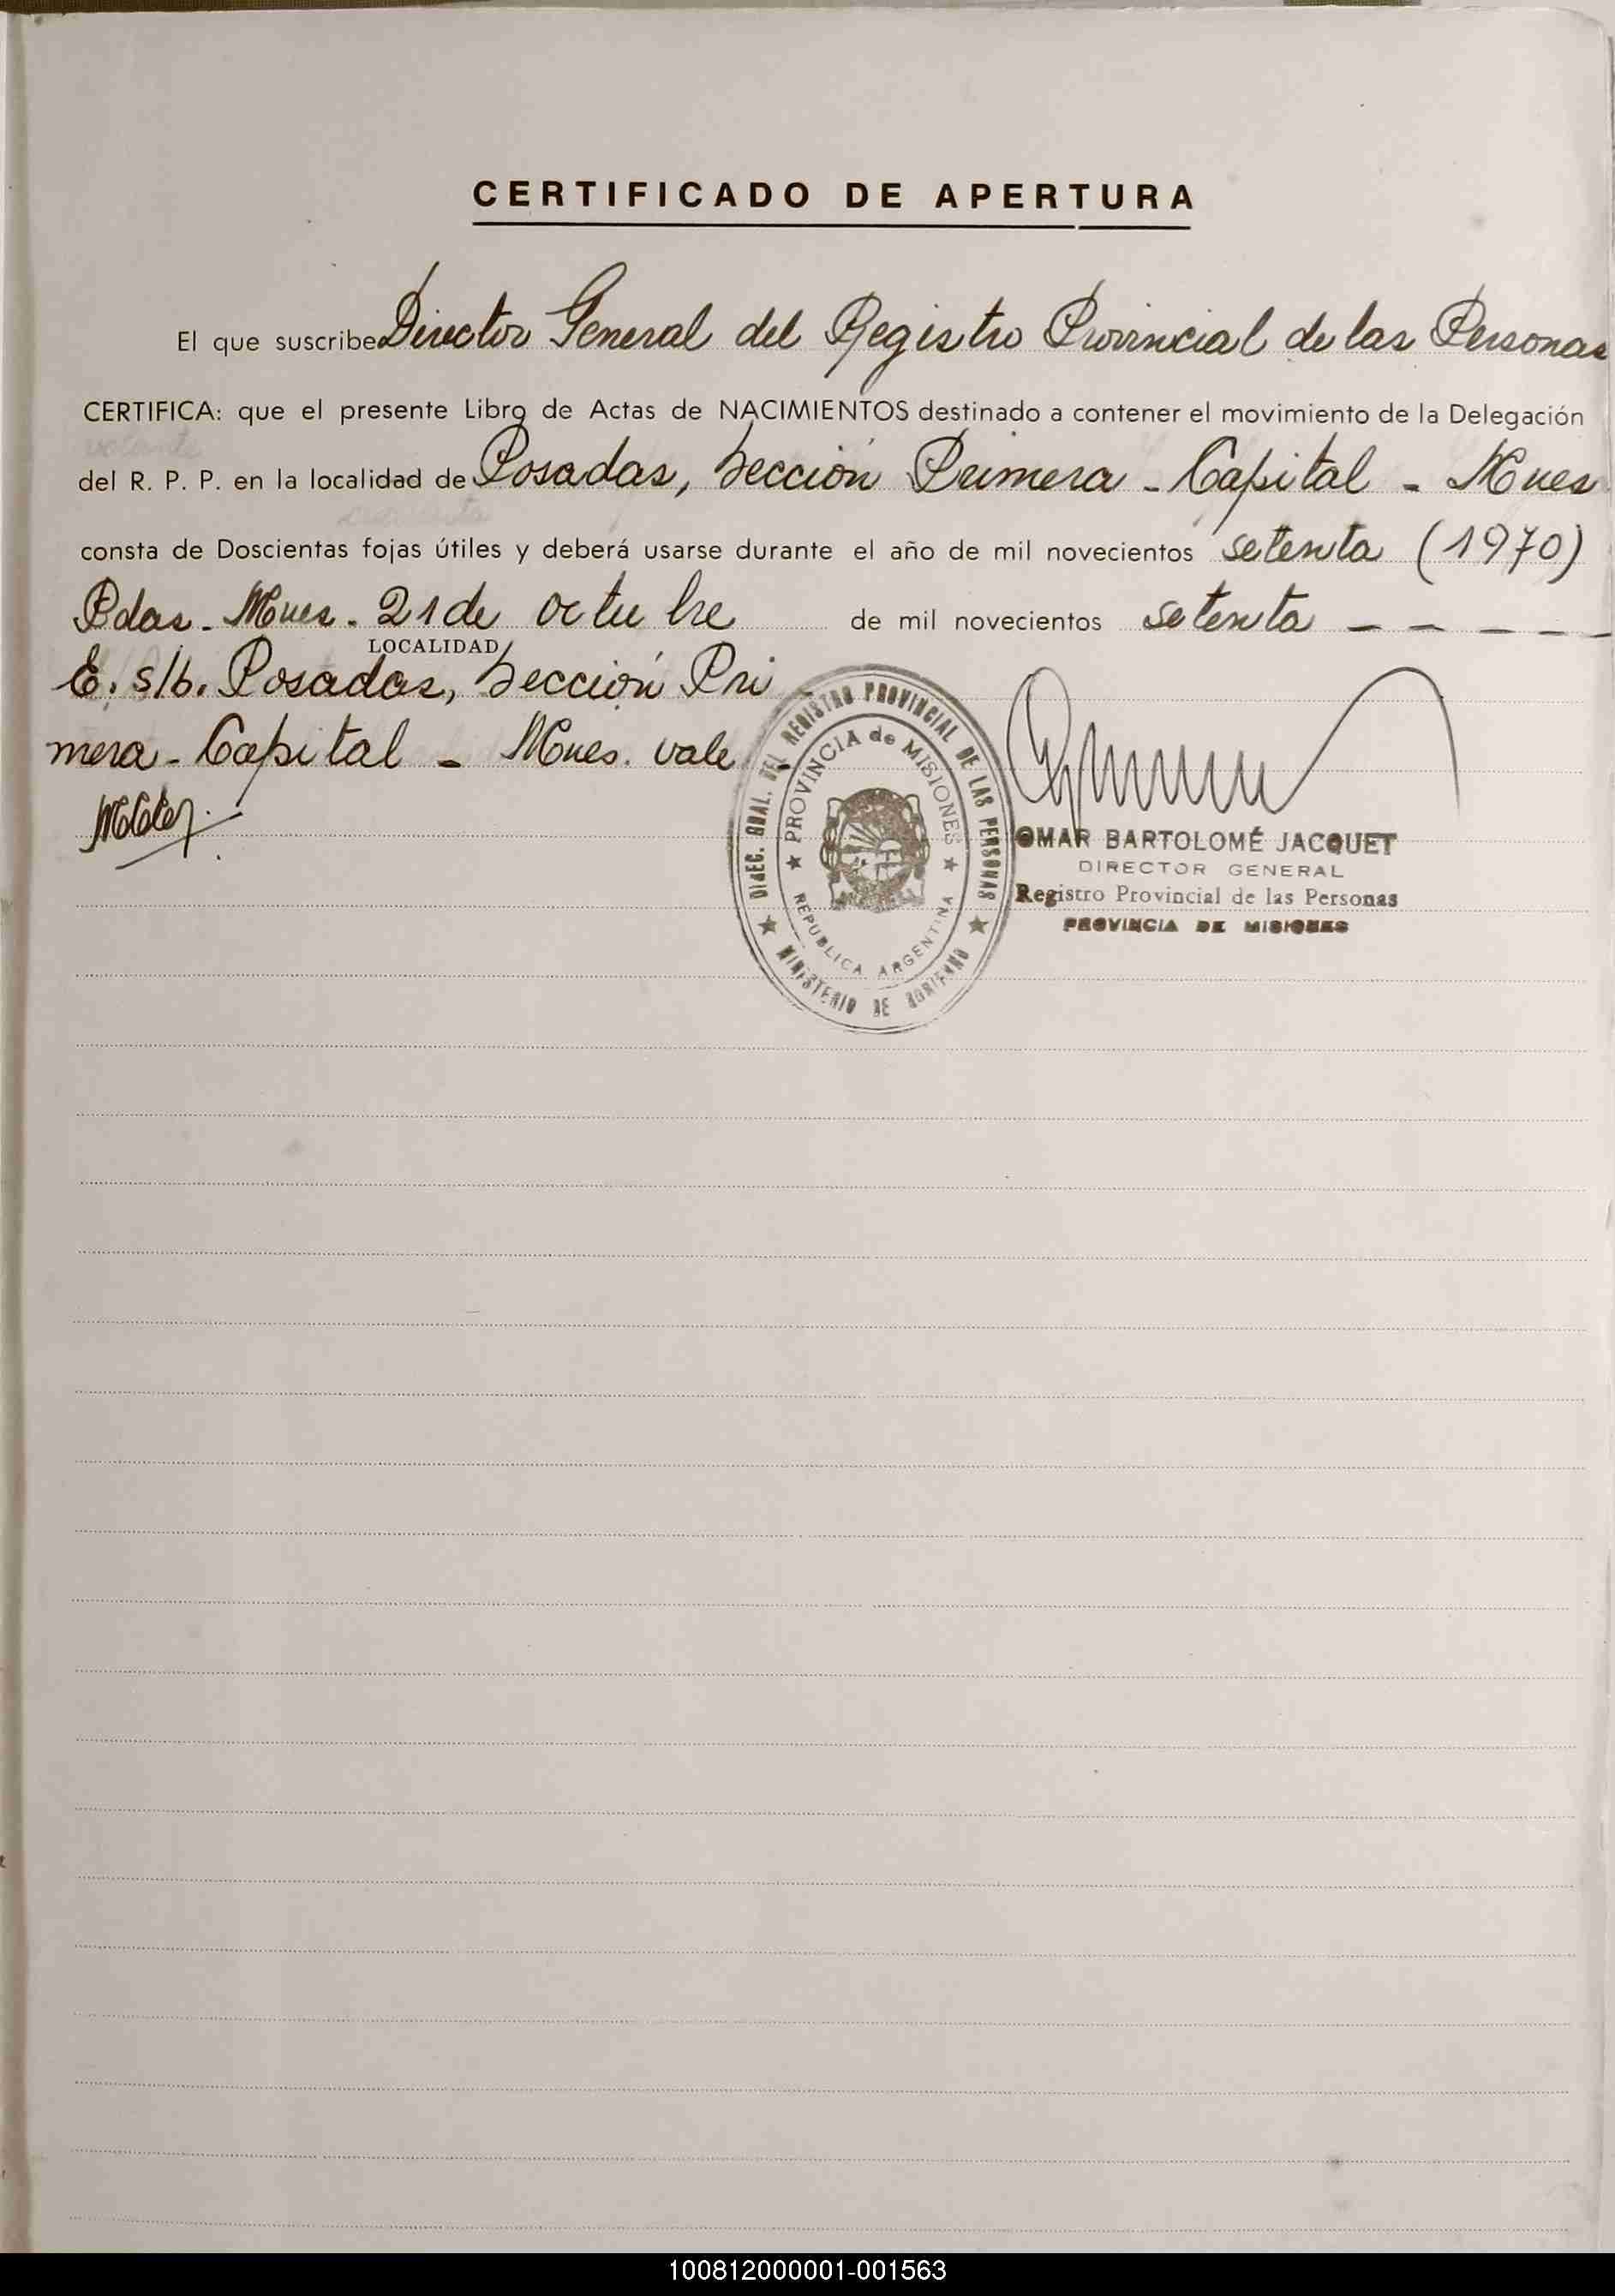 CERTIFICADO DE APERTURA
El que suscribe Director General del Registro Provincial de las Personas
CERTIFICA: que el presente Libro de Actas de NACIMIENTOS destinado a contener el movimiento de la Delegación
del R. P. P. en la localidad de Posadas, Sección Primera - Capital - Mnes
consta de Doscientas fojas útiles y deberá usarse durante el año de mil novecientos setenta (1970)
Pdas. Mnes. 21 de octubre de mil novecientos setenta - - - - -
LOCALIDAD
E. s/b. Posadas, Sección Pri
mera - Capital - Mnes. vale
DIREC. GRAL. DEL REGISTRO PROVINCIAL DE LAS PERSONAS
PROVINCIA de MISIONES
REPUBLICA ARGENTINA
MINISTERIO DE GOBIERNO
OMAR BARTOLOMÉ JACQUET
DIRECTOR GENERAL
Registro Provincial de las Personas
PROVINCIA DE MISIONES
100812000001-001563